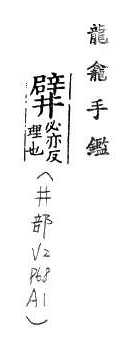 龍龕手鑑
必亦反
理也
(井部
V2
P68
A1)